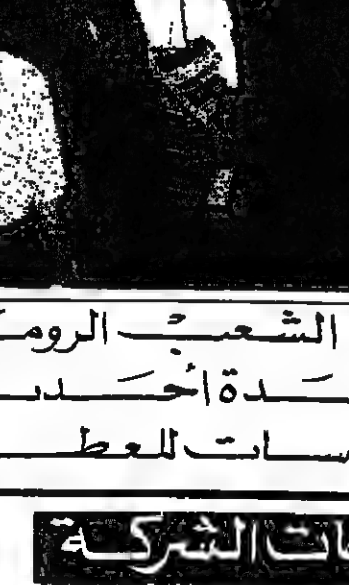 الشعب الروم
ـدة أحـد
سات للعط
ات الشركة